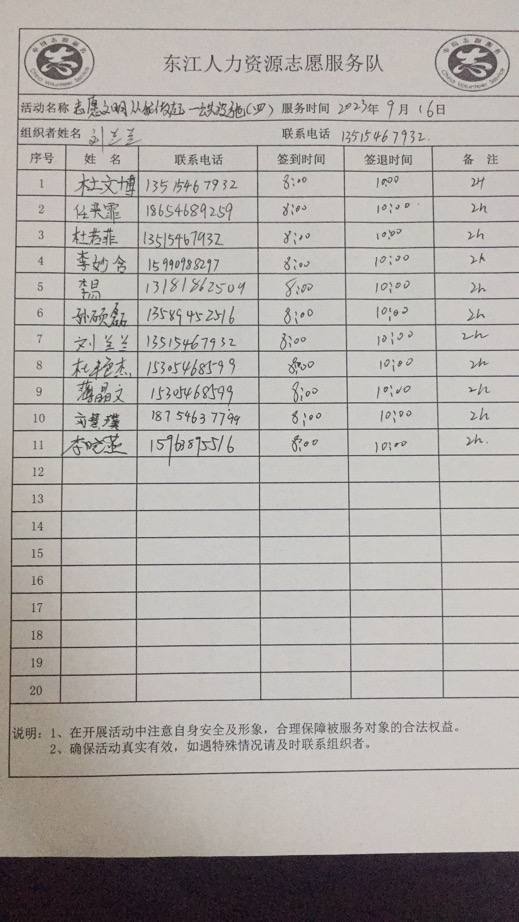 中国志愿服务
China Volunteer Service
东江人力资源志愿服务队
中国志愿服务
China Volunteer Service
活动名称 志愿文明从 (四) 服务时间 2023年 9月 16日
组织者姓名 刘兰兰 联系电话 13515467932.
序号 姓 名 联系电话 签到时间 签退时间 备 注
1 杜文博 13515467932 8:00 10:00 2H
2 任 霏 18654689259 8:00 10:00 2h
3 杜若菲 13515467932 8:00 10:00 2h
4 李妙含 15990988297 8:00 10:00 2h
5 李昌 13181862509 8:00 10:00 2h
6 孙硕磊 13589452516 8:00 10:00 2h
7 刘兰兰 13515467932 8:00 10:00 2h
8 杜 杰 15305468599 8:00 10:00 2h
9 薄晶文 15305468599 8:00 10:00 2h
10 刘慧瑛 18754637799 8:00 10:00 2h
11 李晓燕 15963895516 8:00 10:00 2h.
12
13
14
15
16
17
18
19
20
说明：1、在开展活动中注意自身安全及形象，合理保障被服务对象的合法权益。
2、确保活动真实有效，如遇特殊情况请及时联系组织者。